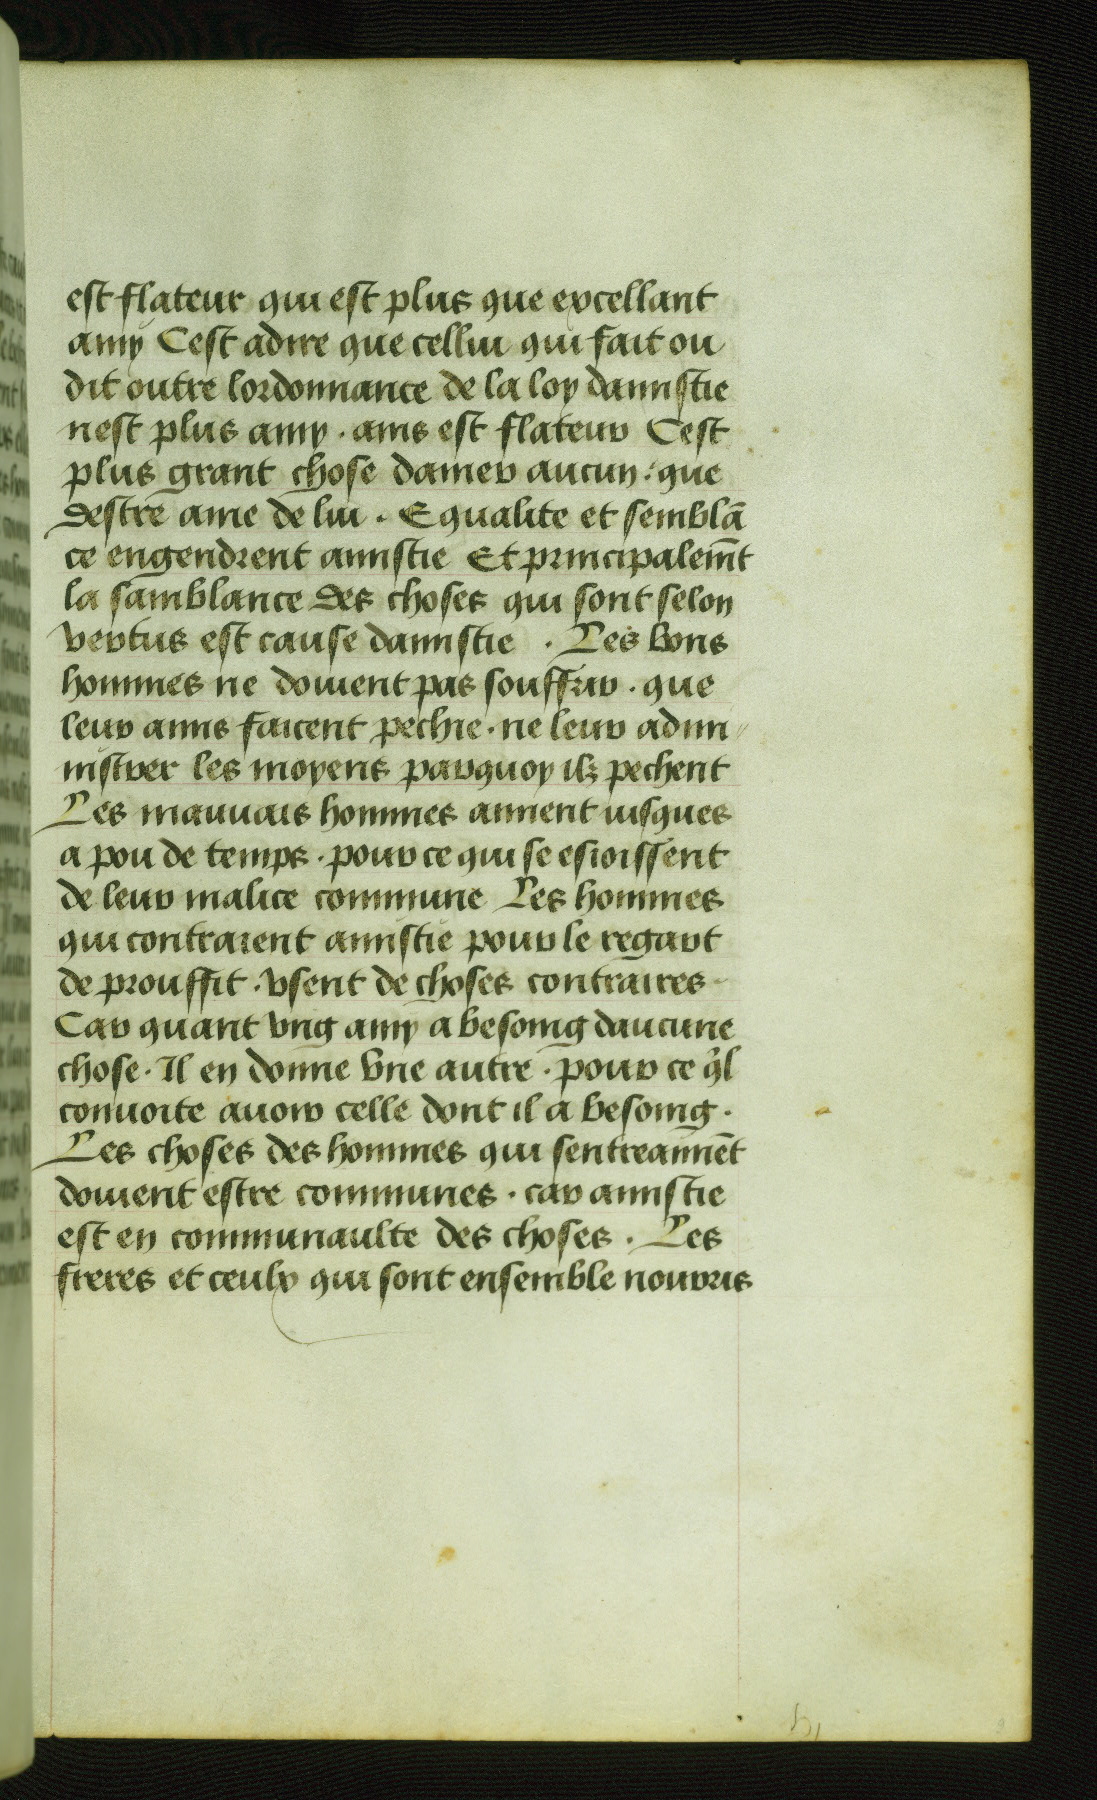 est flateur qui est plus que excellant
amy Cest adire que cellui qui fait ou
dit outre lordonnance de la loy damistie
nest plus amy . ains est flateur Cest
plus grant chose damer aucun : que
destre ame de lui . Equalite et semblā
ce engendrent amistie Et principalem̄t
la samblance des choses qui sont selon
vertus est cause damistie . Les bons
hommes ne doiuent pas souffrir . que
leur amis faicent pechie . ne leur admi
nistrer les moyens parquoy ilz pechent
Les mauuais hommes aiment iusques
a pou de temps . pour ce qui se esioissent
de leur malice commune Les hommes
qui contraient amistie pour le regart
de prouffit . vsent de choses contraires
Car quant vng amy a besoing daucune
chose . Il en donne vne autre . pour ce q̄l
conuoite auoir celle dont il a besoing .
Les choses des hommes qui sentreaimēt
doiuent estre communes . car amistie
est en communaulte des choses . Les
freres et ceulx qui sont ensemble nourris